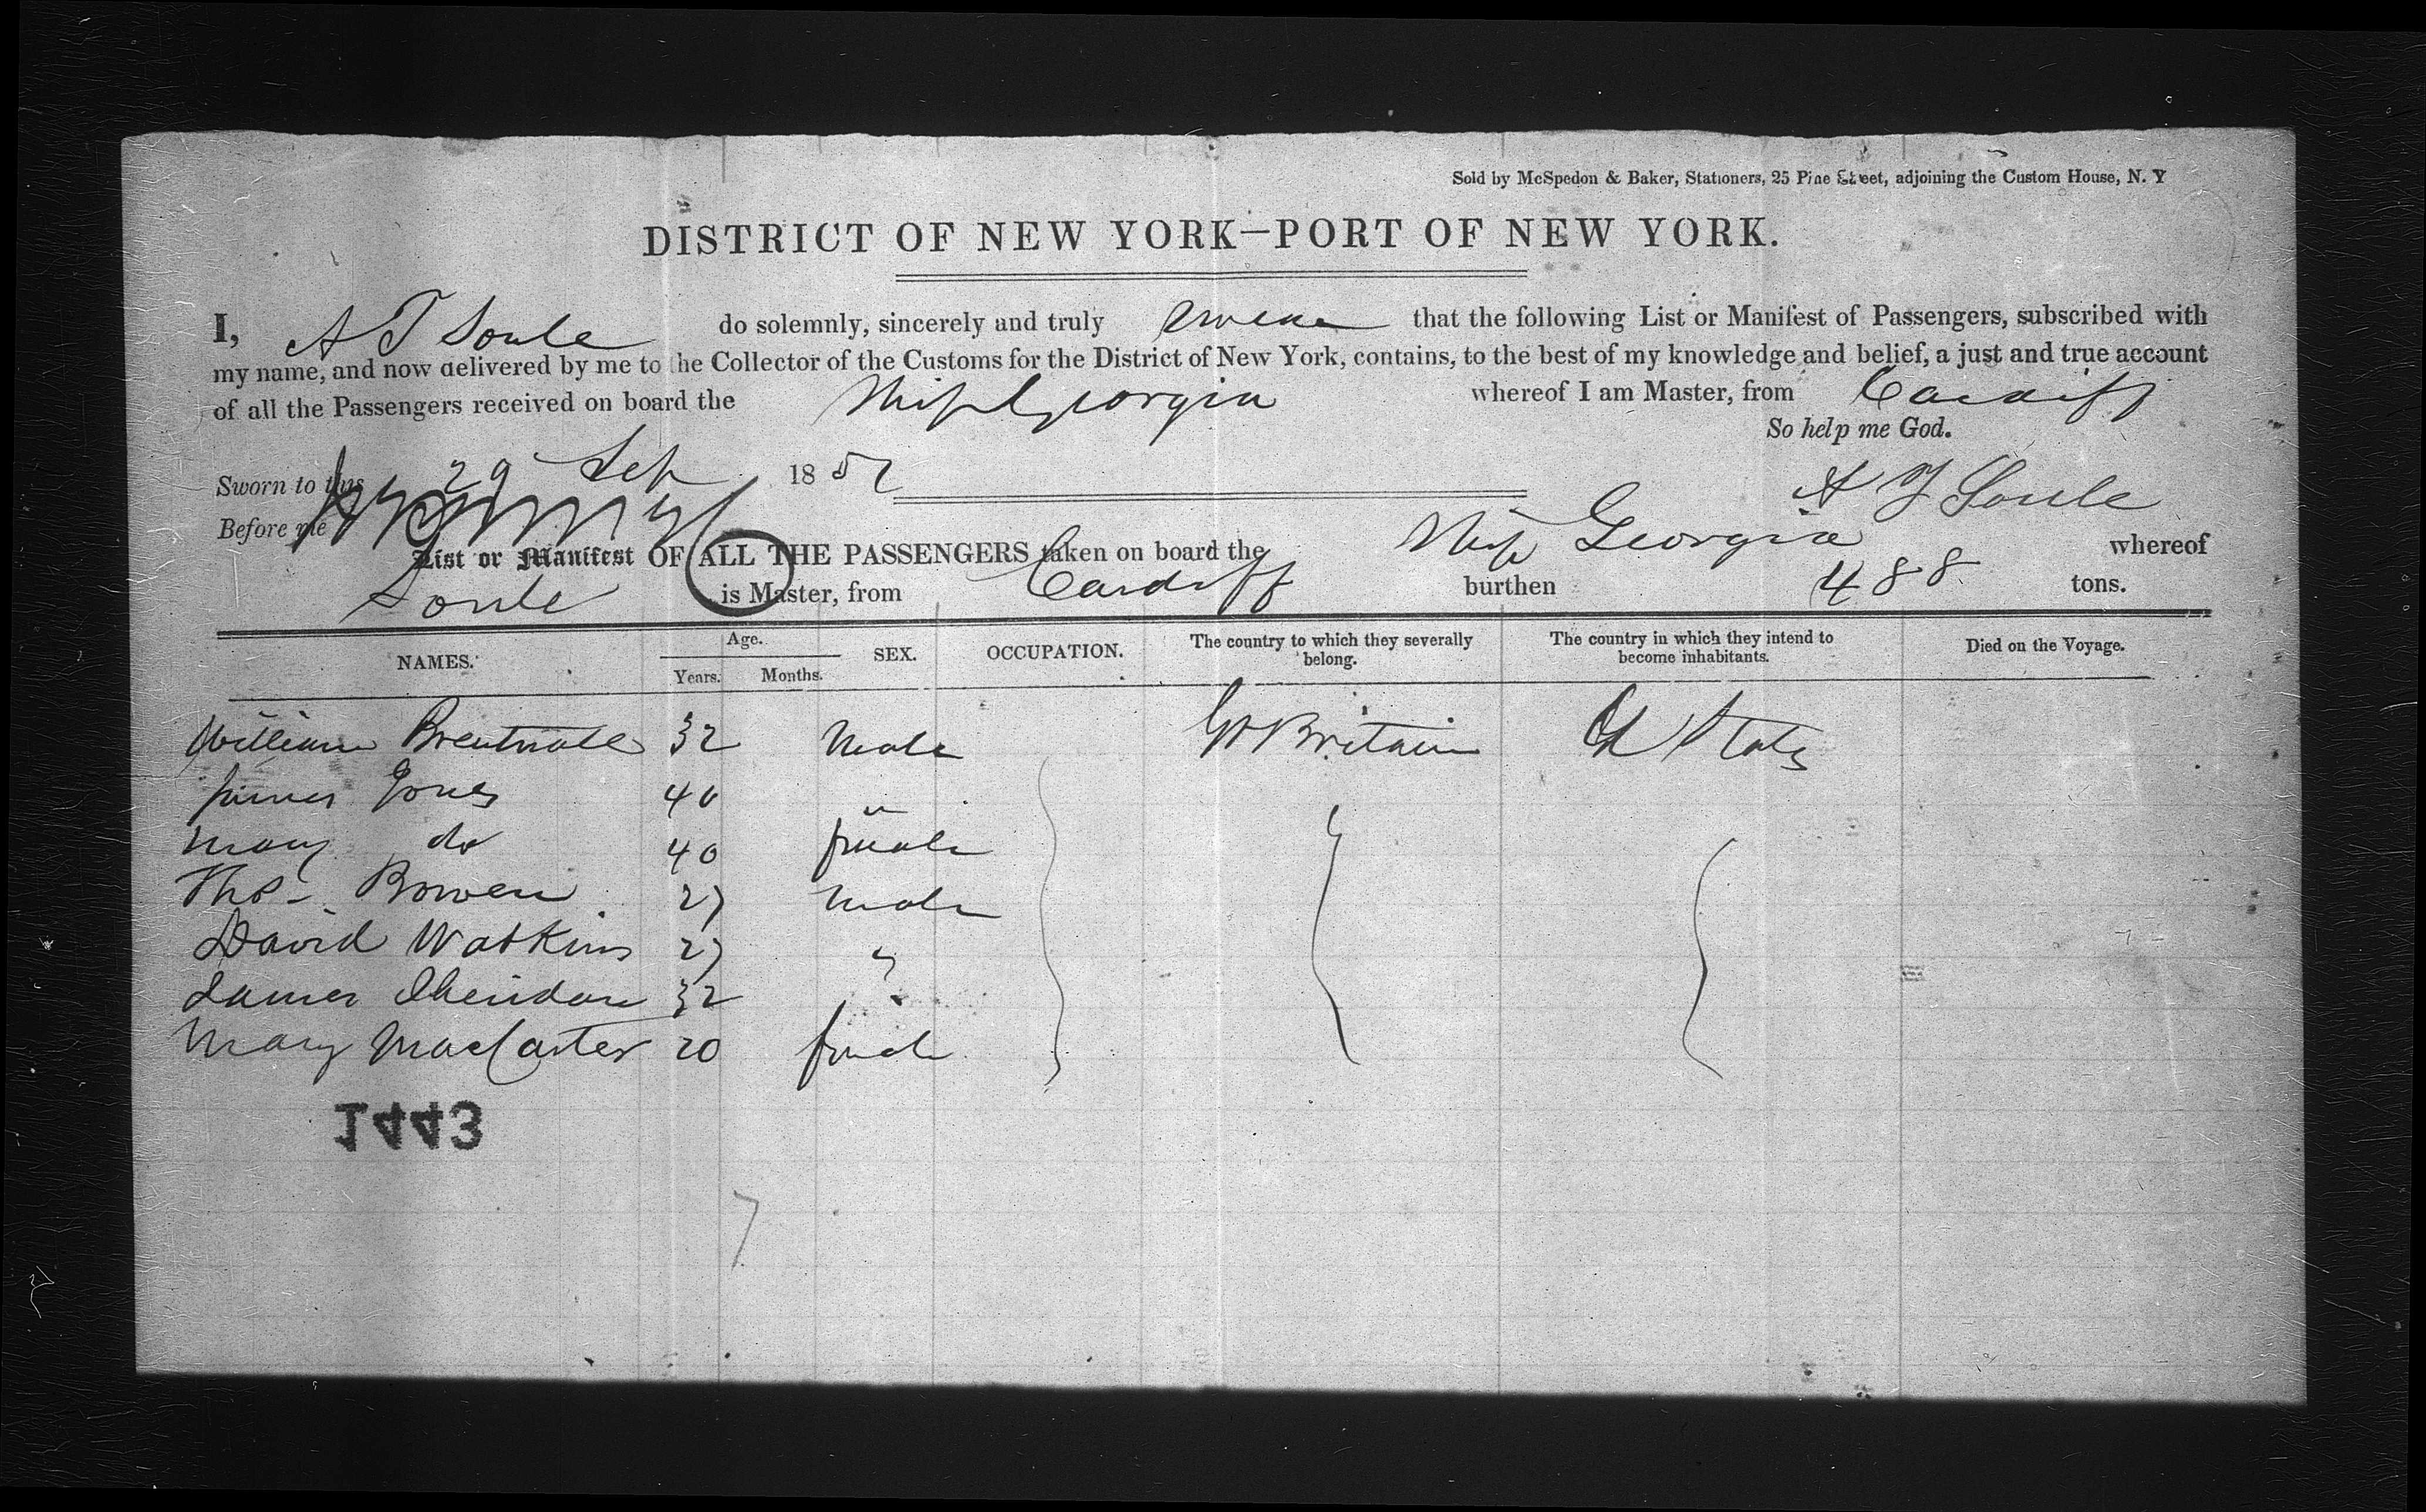 Sold by McSpedon & Baker, Stationers, 25 Pine Street, adjoining the Custom House, N. Y
DISTRICT OF NEW YORK—PORT OF NEW YORK.
I, A T Soule do solemnly, sincerely and truly swear that the following List or Manifest of Passengers, subscribed with
my name, and now delivered by me to the Collector of the Customs for the District of New York, contains, to the best of my knowledge and belief, a just and true account
of all the Passengers received on board the Ship Georgia whereof I am Master, from Cardiff
So help me God.
Sworn to this 29 Sep 1852
A T Soule
Before me
List or Manifest OF ALL THE PASSENGERS taken on board the Ship Georgia whereof
Soule is Master, from Cardiff burthen 488 tons.
NAMES. Age. Years. Months. SEX. OCCUPATION. The country to which they severally belong. The country in which they intend to become inhabitants. Died on the Voyage.
William Brentnall 32 Male Gt Britain Ud States
James Jones 40 "
Mary do 40 female
Thos Bowen 27 male
David Watkins 27 "
James Sheridan 32 "
Mary MacCarter 20 female
1443
7